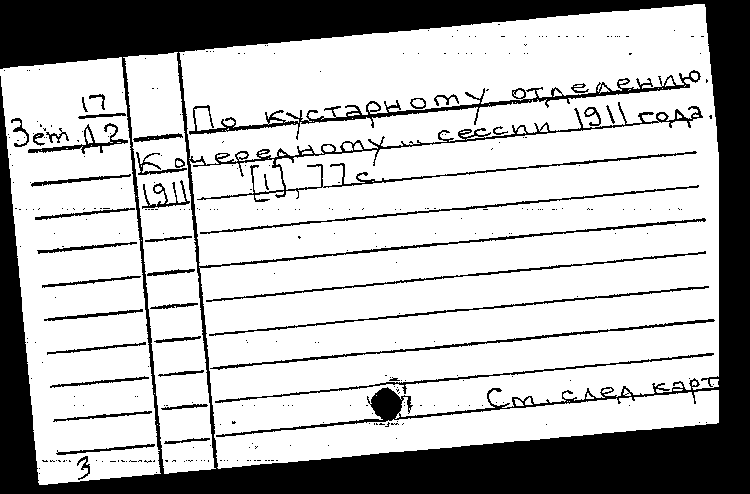 17
Зем. Д2
По кустарному отделению.
К очередному ... сессии 1911 года.
1911 [1], 77 с.
См. след. карт
3